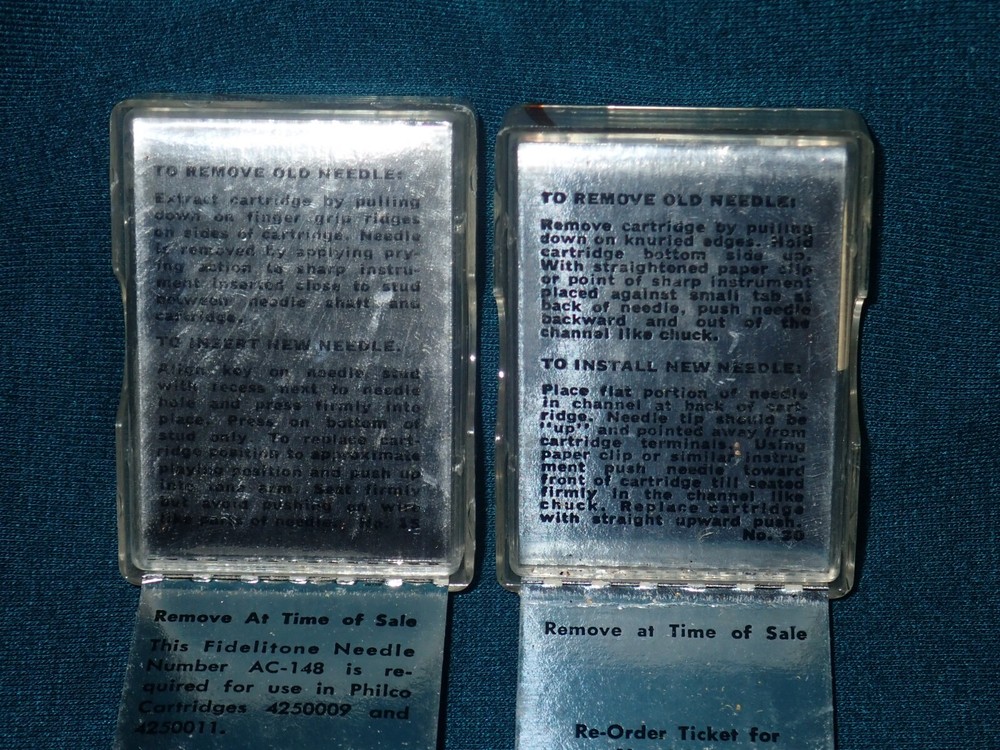 TO REMOVE OLD NEEDLE:
Extract cartridge by pulling
down on finger grip ridges
on sides of cartridge. Needle
is removed by applying pry-
ing action to sharp instru-
ment inserted close to stud
between needle shaft and
cartridge.
TO INSERT NEW NEEDLE.
Align key on needle stud
with recess next to needle
hole and press firmly into
place. Press on bottom of
stud only. To replace cart-
ridge position to approximate
playing position and push up
into tone arm. Seat firmly
but avoid pushing on wire
like parts of needle. No. 15
Remove At Time of Sale
This Fidelitone Needle
Number AC-148 is re-
quired for use in Philco
Cartridges 4250009 and
4250011.
TO REMOVE OLD NEEDLE:
Remove cartridge by pulling
down on knurled edges. Hold
cartridge bottom side up.
With straightened paper clip
or point of sharp instrument
placed against small tab at
back of needle, push needle
backward and out of the
channel like chuck.
TO INSTALL NEW NEEDLE:
Place flat portion of needle
in channel at back of cart-
ridge. Needle tip should be
"up" and pointed away from
cartridge terminals. Using
paper clip or similar instru-
ment push needle toward
front of cartridge till seated
firmly in the channel like
chuck. Replace cartridge
with straight upward push.
No. 20
Remove at Time of Sale
Re-Order Ticket for